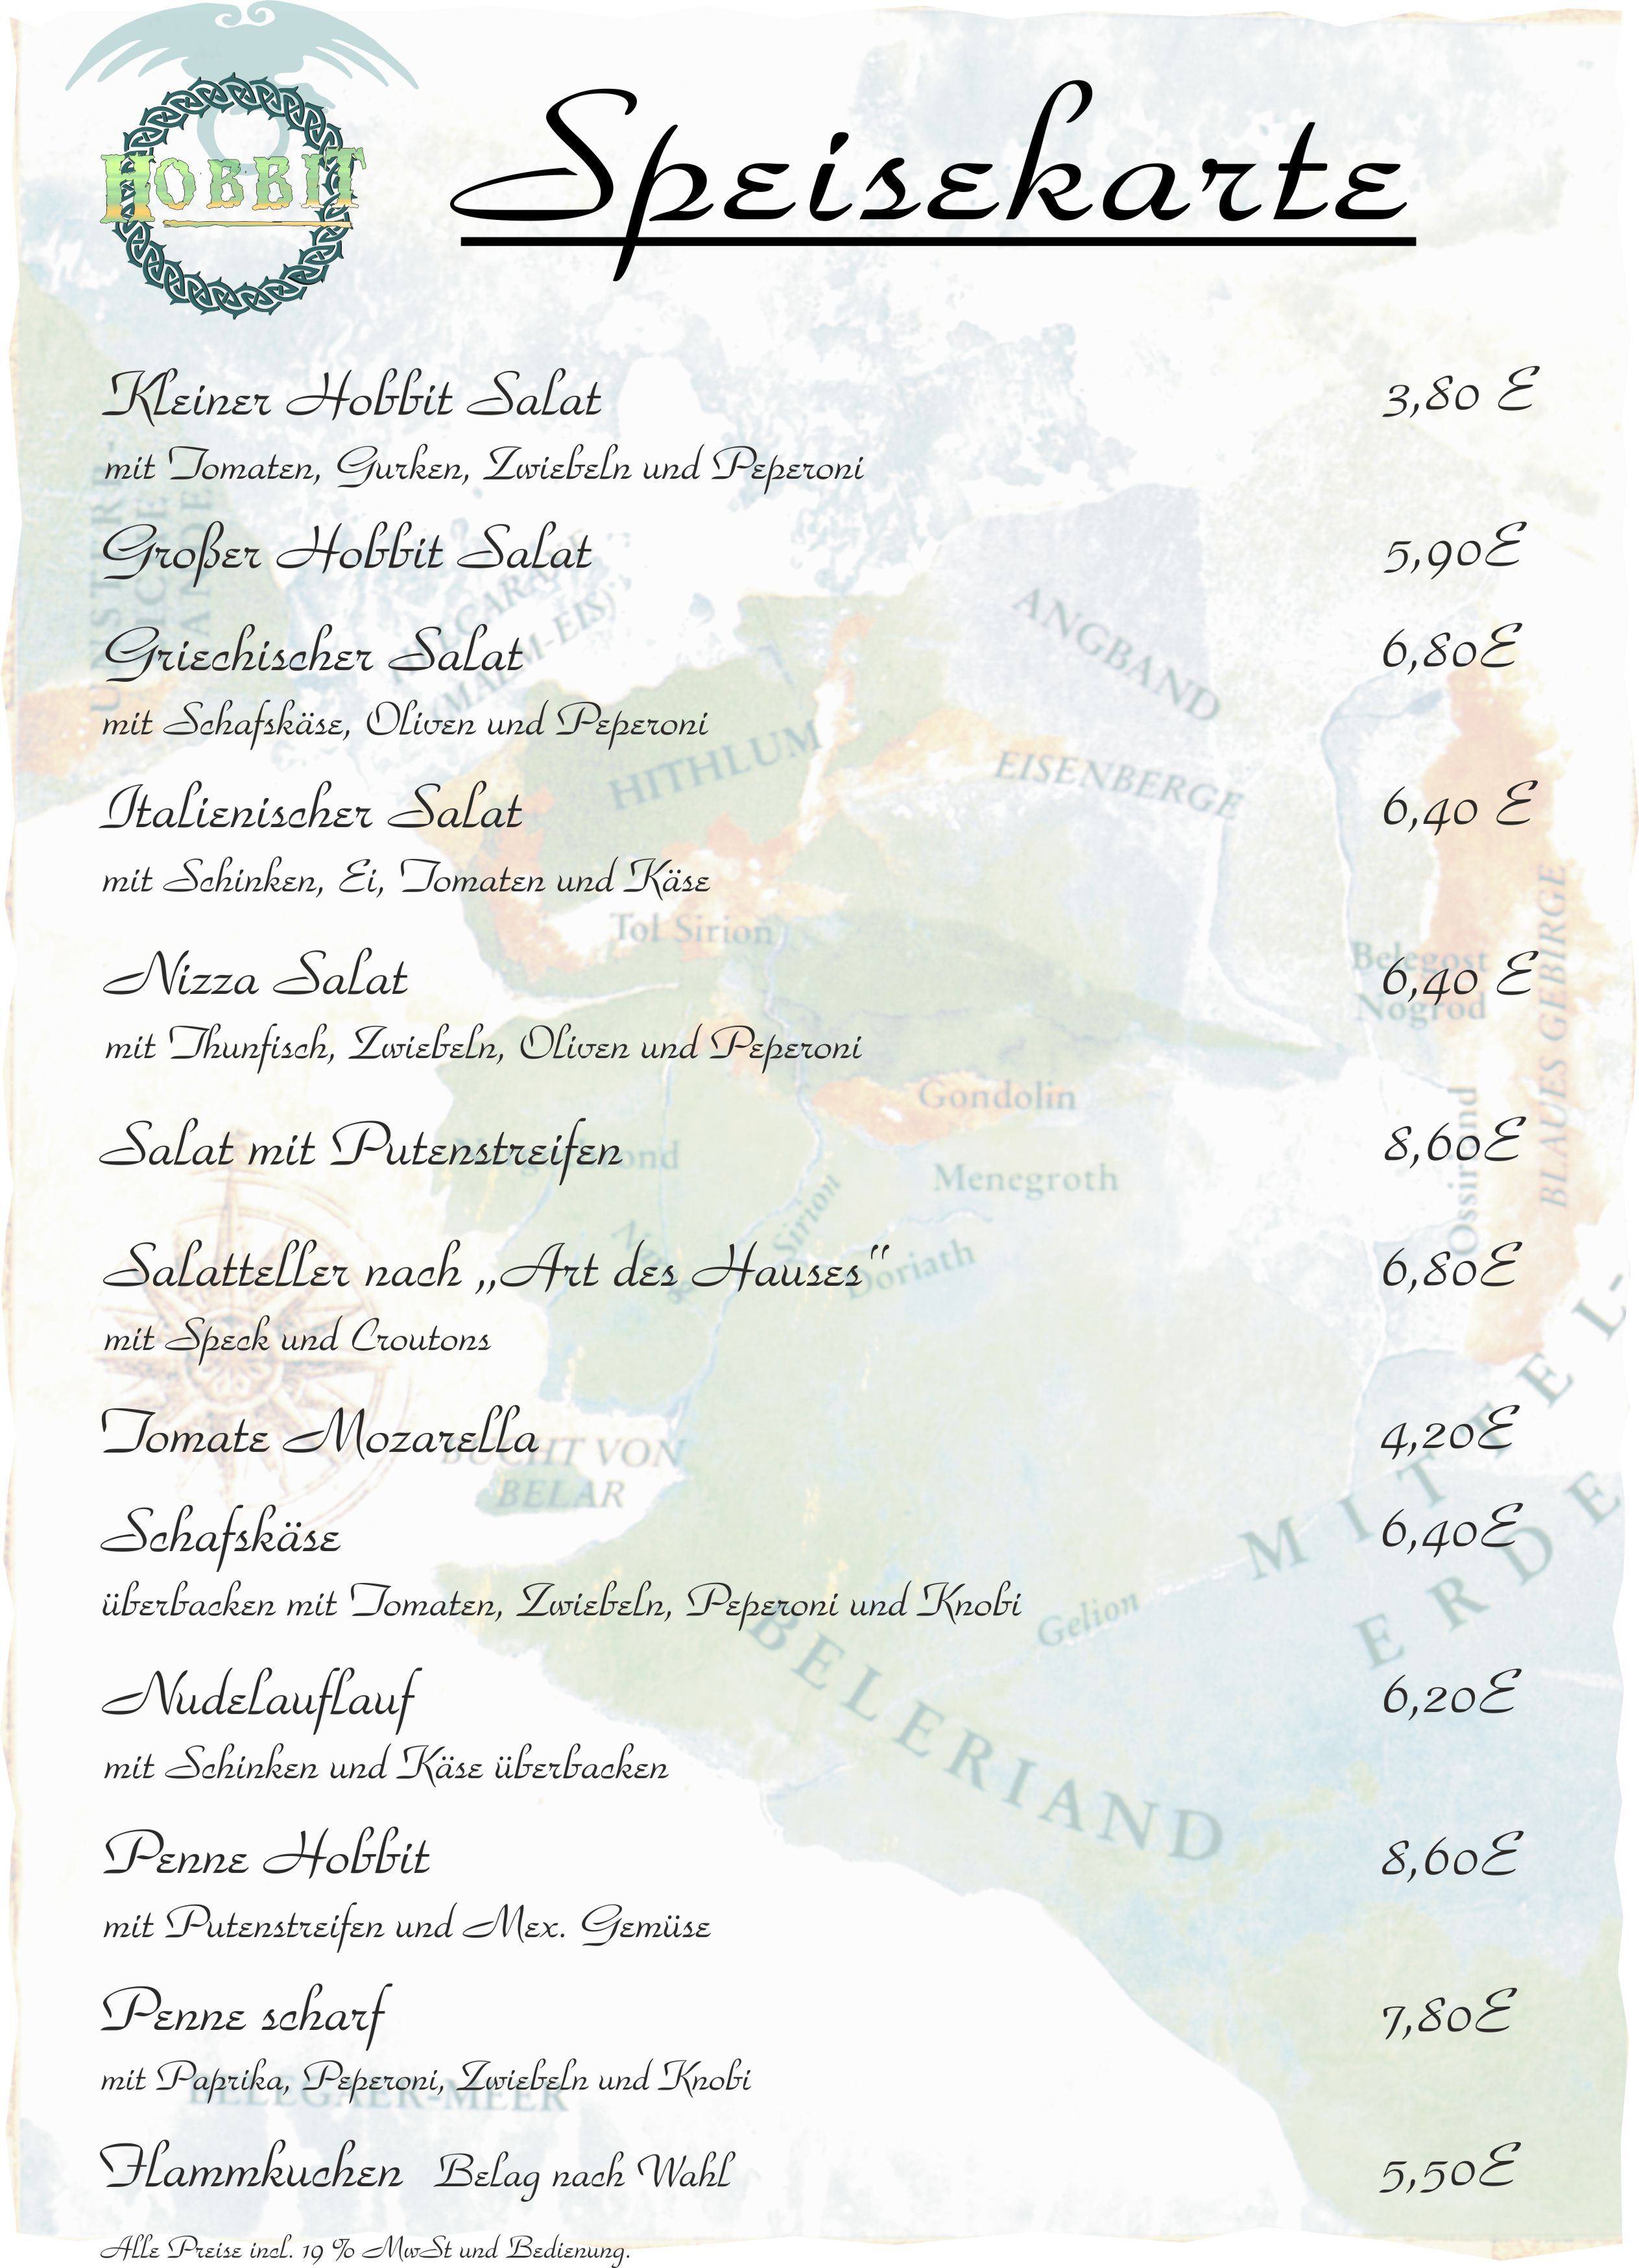 HOBBIT
Speisekarte
Kleiner Hobbit Salat 3,80 E
mit Tomaten, Gurken, Zwiebeln und Peperoni
Großer Hobbit Salat 5,90E
Griechischer Salat 6,80E
mit Schafskäse, Oliven und Peperoni
Italienischer Salat 6,40 E
mit Schinken, Ei, Tomaten und Käse
Nizza Salat 6,40 E
mit Thunfisch, Zwiebeln, Oliven und Peperoni
Salat mit Putenstreifen 8,60E
Salatteller nach „Art des Hauses" 6,80E
mit Speck und Croutons
Tomate Mozarella 4,20E
Schafskäse 6,40E
überbacken mit Tomaten, Zwiebeln, Peperoni und Knobi
Nudelauflauf 6,20E
mit Schinken und Käse überbacken
Penne Hobbit 8,60E
mit Putenstreifen und Mex. Gemüse
Penne scharf 7,80E
mit Paprika, Peperoni, Zwiebeln und Knobi
Flammkuchen Belag nach Wahl 5,50E
Alle Preise incl. 19 % MwSt und Bedienung.
ANGBAND
HITHLUM
EISENBERGE
Tol Sirion
Belegost
Nogrod
BLAUES GEBIRGE
Gondolin
Menegroth
Sirion
Doriath
Ossiriand
BUCHT VON
BELAR
Gelion
MITTEL-
ERDE
BELERIAND
BELEGAER-MEER